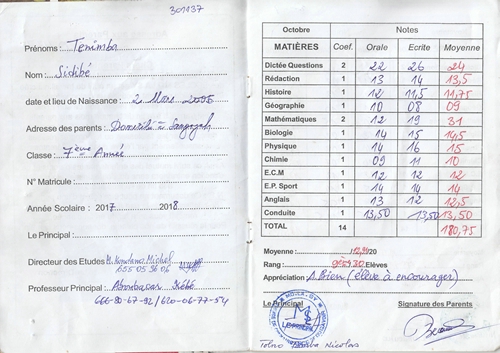 301137
Prénoms: Tenimba
Nom: Sidibé
date et lieu de Naissance: 2 Mars 2005
Adresse des parents: Domicilié à
Classe: 7ème Année
N° Matricule:
Année Scolaire: 2017 2018
Le Principal:
Directeur des Etudes: Michel
655 05 36 06
Professeur Principal: Aboubacar
666-80-67-92/620-06-77-54
Octobre Notes
MATIÈRES Coef. Orale Ecrite Moyenne
Dictée Questions 2 22 26 24
Rédaction 1 13 14 13,5
Histoire 1 12 11,5 11,75
Géographie 1 10 08 09
Mathématiques 2 12 19 31
Biologie 1 14 15 14,5
Physique 1 14 16 15
Chimie 1 09 11 10
E.C.M 1 12 12 12
E.P. Sport 1 14 14 14
Anglais 1 13 12 12,5
Conduite 1 13,50 13,50 13,50
TOTAL 14 180,75
Moyenne: /20
Rang: Elèves
Appréciation: A.Bien (élève à encourager)
Le Principal Signature des Parents
Tolno Bamba Nicolas